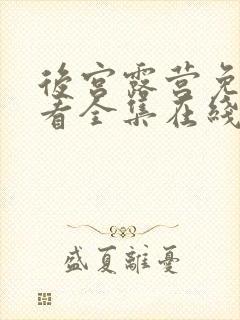 後宮露营免
看全集在綫
盛夏離憂